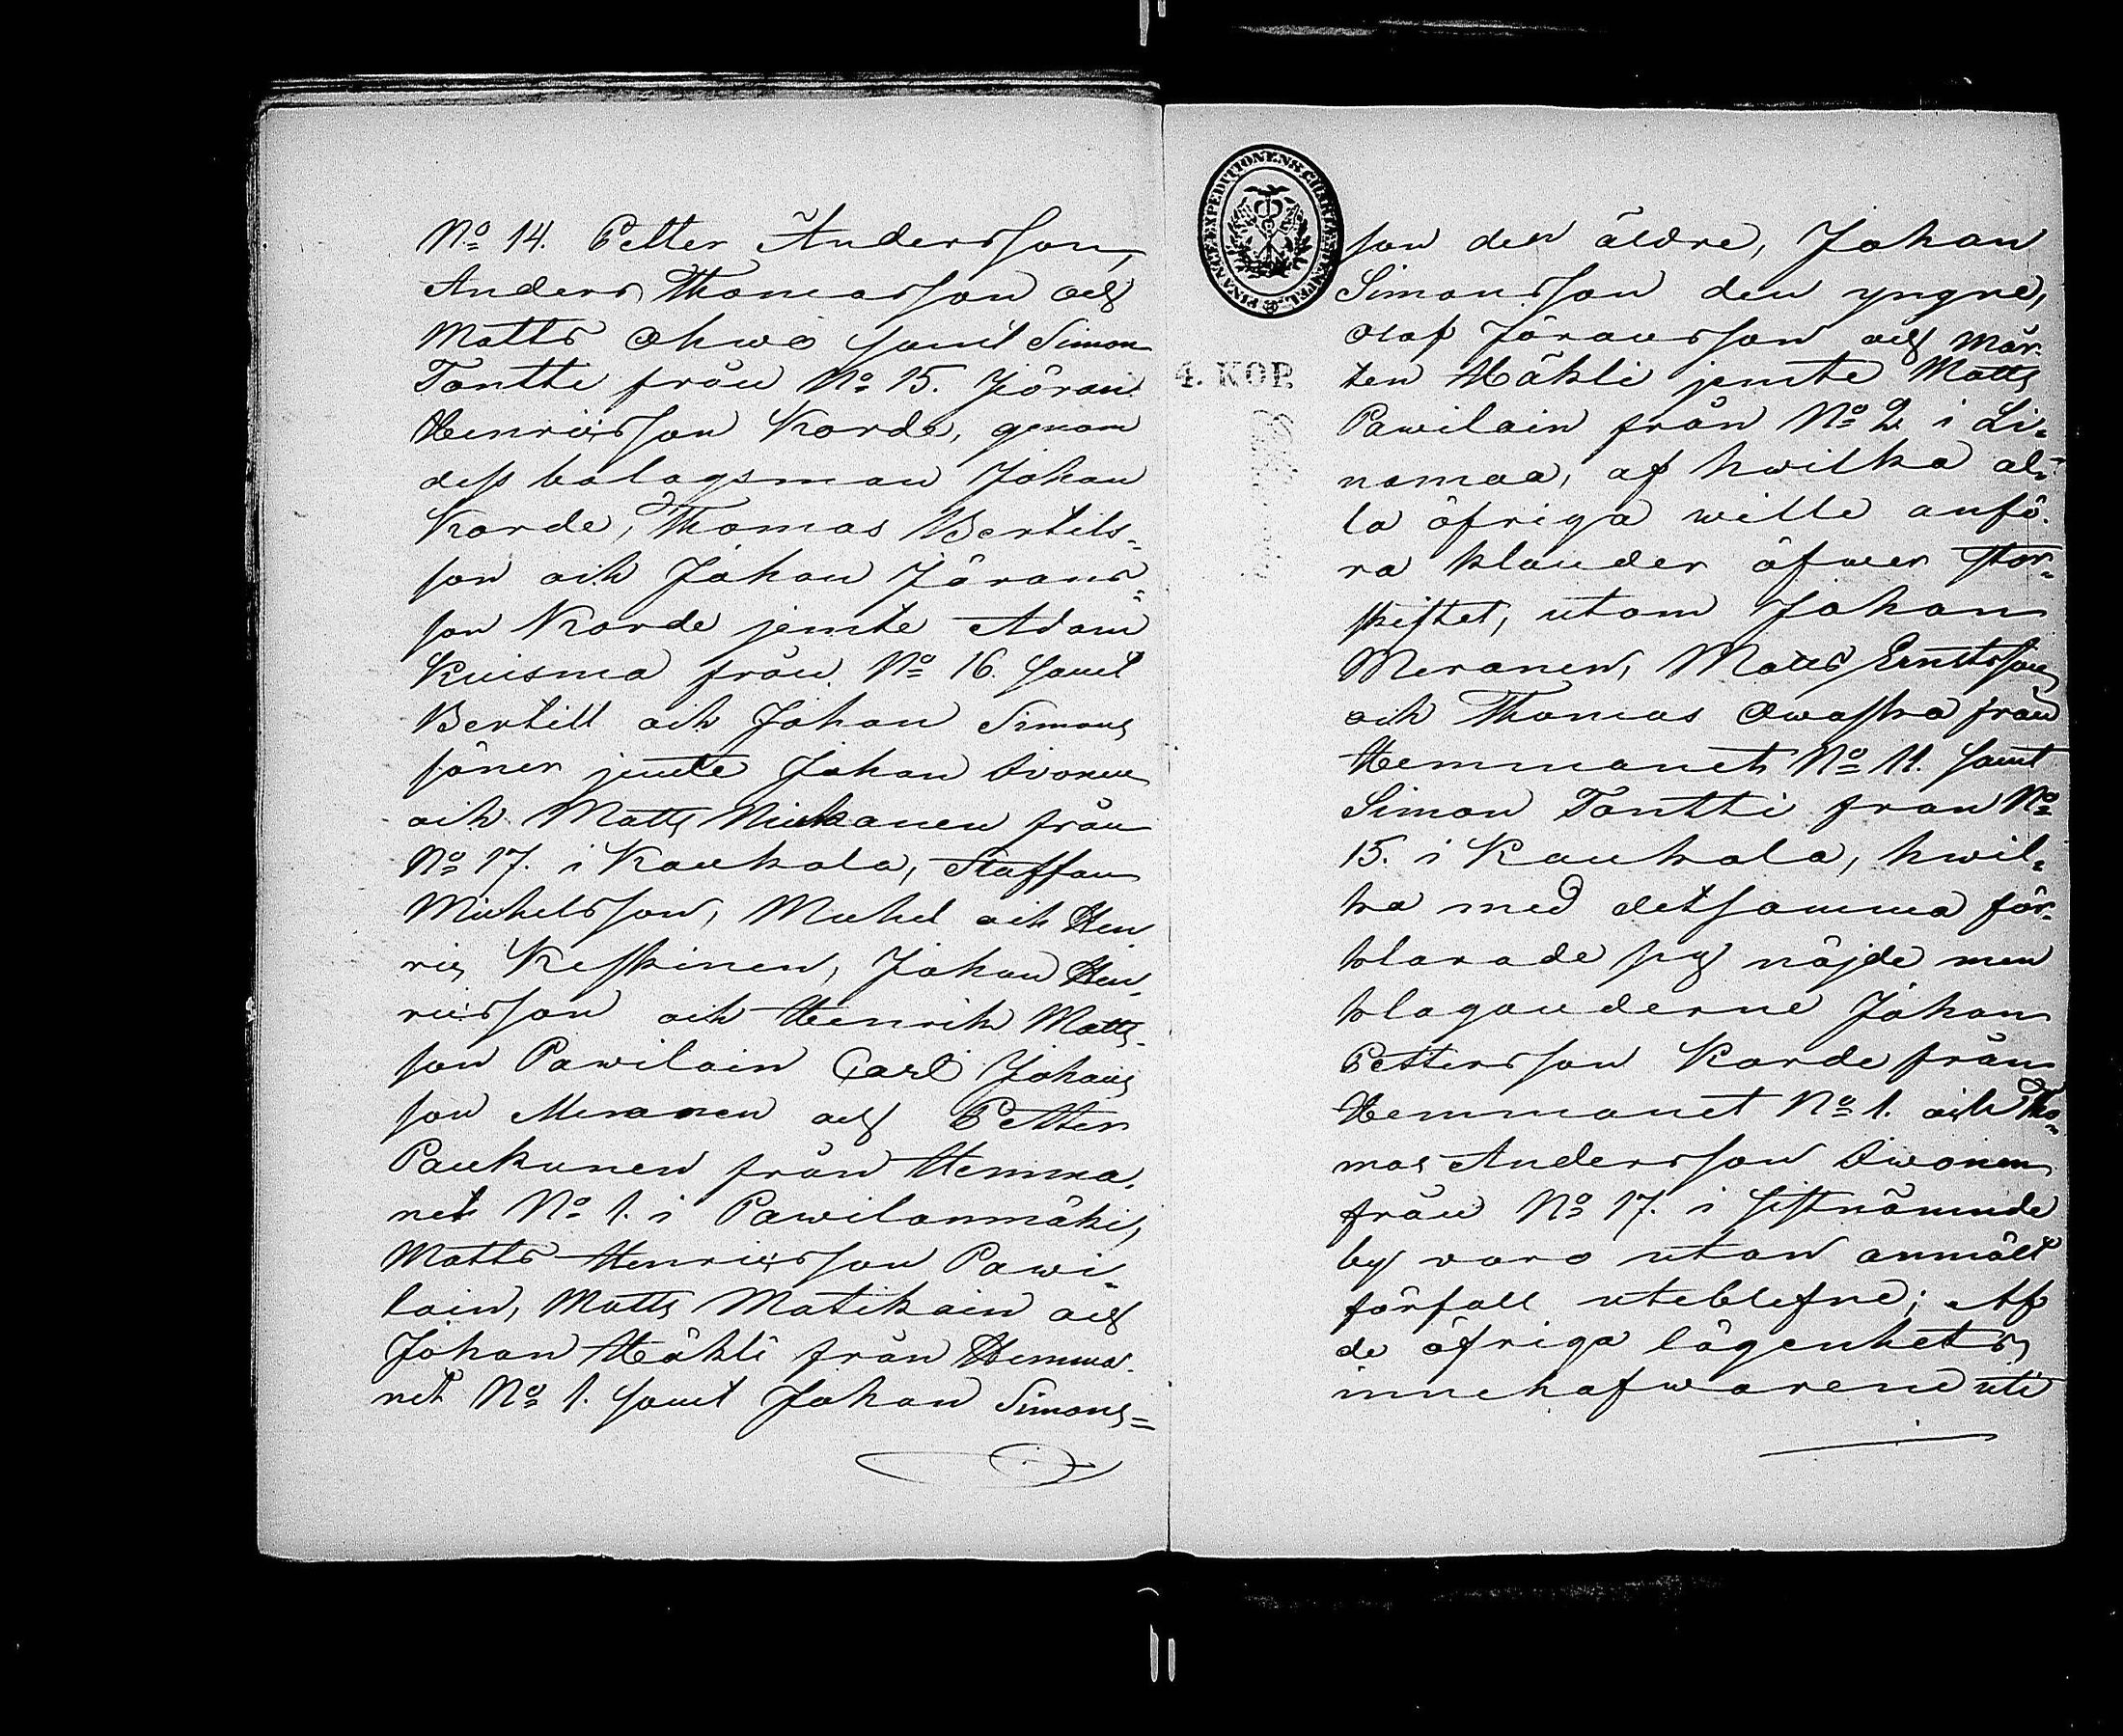 No 14. Petter Andersson,
Anders Thomasson och
Matts Ohwo samt Simon
Tontti från No 15. Jöran
Henricsson Korde, genom
dess bolagsman Johan
Korde, Thomas Bertils-
son och Johan Jörans-
son Korde jemte Adam
Kuisma från No 16. samt
Bertill och Johan Simons
söner jemte Johan Ivonen
och Matts Niukanen från
No 17. i Kaukola, Staffan
Michelsson, Michel och Hen
ric Keskinen, Johan Hen-
ricsson och Henrik Matts-
son Pawilain Carl Johans
son Meranen och Petter
Paukunen från Hemma-
net No 1. i Pawilanmäki,
Matts Henricsson Pawi-
lain, Matts Matikain och
Johan Häkli från Hemma-
net No 1. samt Johan Simons=
FINANCE EXPEDITIONENS CHARTÆ STEMPEL
4. KOP.
son den äldre, Johan
Simonsson den yngre,
Olof Göransson och Mår-
ten Häkli jemte Matts
Pawilain från No 2 i Li-
namaa, af hwilka al-
la öfriga wille anfö-
ra klander öfwer stor-
skiftet, utom Johan
Meranen, Matts Ernstsson
och Thomas Owaska från
Hemmanet No 11. samt
Simon Tontti fran No
15. i Kaukola, hwil-
ka med detsamma för-
klarade sig nöjde men
klaganderne Johan
Pettersson Korde från
Hemmanet No 1. och Tho-
mas Andersson Iwonen
från No 17. i sistnämnde
by voro utan anmält
förfall uteblefne; Af
de öfriga lägenhets
innehafwarene uti